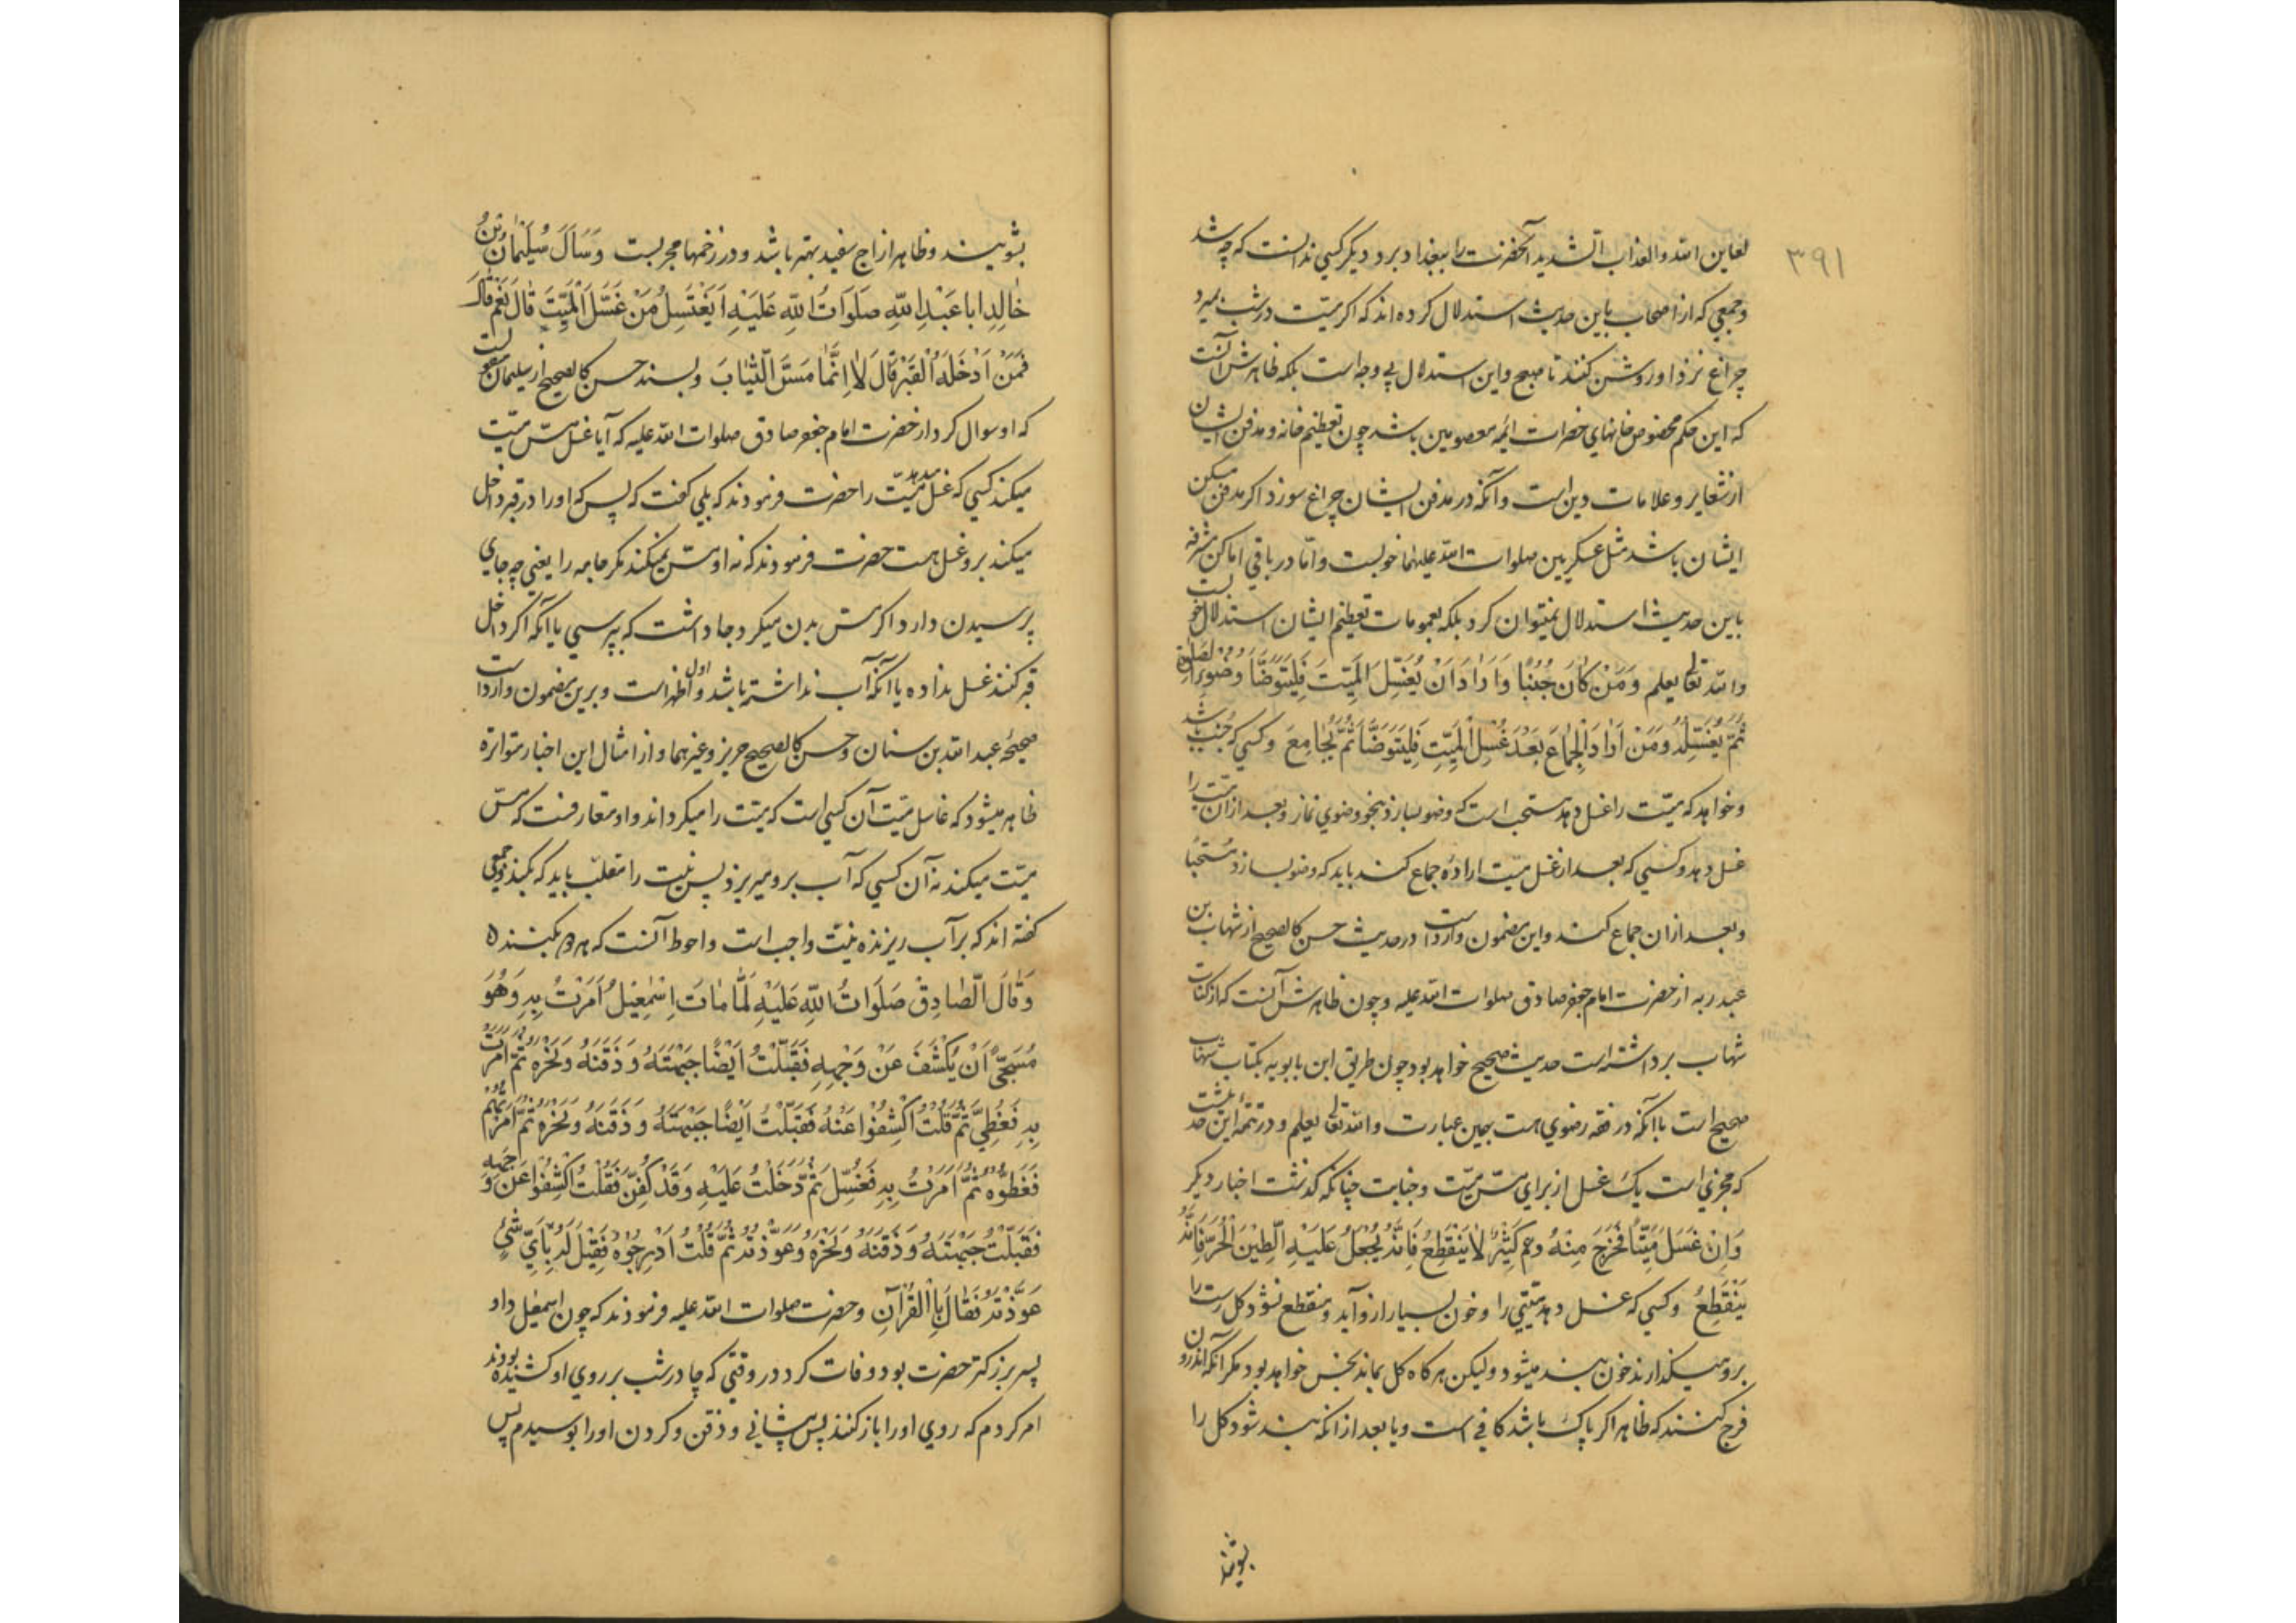 ۳۹۱
لعاین الله والعذاب الشدید آنحضرت را ببغداد برد و دیگر کسی ندانست که چه شد
و جمعی که از اصحاب باین حدیث استدلال کرده اند که اگر میّت در شب بمیرد
چراغ نزد او روشن کنند تا صبح و این استدلال بی وجه است بلکه ظاهرش آنست
که این حکم مخصوص خانهای حضرات ائمه معصومین باشد چون تعظیم خانه و مدفن ایشان
از شعایر و علامات دین است و آنکه در مدفن ایشان چراغ سوزد اگر مدفن مسکن
ایشان باشد مثل عسکریین صلوات الله علیهما خوبست و امّا در باقی اماکن مشرفه
باین حدیث استدلال نمیتوان کرد بلکه بعمومات تعظیم ایشان استدلال خوبست
والله تعالی یعلم وَمَنْ کَانَ جُنُبًا وَاَرَادَ اَنْ یُغَسِّلَ الْمَیِّتَ فَلْیَتَوَضَّأ وُضُوءَ الصَّلوةِ
ثُمَّ یُغَسِّلُهُ وَمَنْ اَرَادَ الْجِمَاعَ بَعْدَ غُسْلِ الْمَیِّتِ فَلْیَتَوَضَّأ ثُمَّ یُجَامِعَ و کسی که جنب باشد
و خواهد که میّت را غسل دهد مستحب است که وضو بسازد بنحو وضوی نماز و بعد از ان میّت را
غسل دهد و کسی که بعد از غسل میّت ارادهٔ جماع کند باید که وضو بسازد مستحبا
و بعد از ان جماع کند و این مضمون وارد است در حدیث حسن کالصحیح از شهاب بن
عبد ربه از حضرت امام جعفر صادق صلوات الله علیه و چون ظاهرش آنست که از کتاب
شهاب برداشته است حدیث صحیح خواهد بود چون طریق ابن بابویه بکتاب شهاب
صحیح است با آنکه در فقه رضوی هست بهمین عبارت والله تعالی یعلم و در تتمهٔ این حدیث
که مجزی است یک غسل از برای مسّ میّت و جنابت چنانکه گذشت اخبار دیگر
وَاِنْ غَسَلَ مَیِّتًا فَخَرَجَ مِنْهُ دَم کَثِیْرٌ لَا یَنْقَطِعُ فَاِنَّهُ یُجْعَلُ عَلَیْهِ الطِّیْنَ الْحُرَّ فَاِنَّهُ
یَنْقَطِعُ و کسی که غسل دهد میّتی را و خون بسیار از و آید و منقطع نشود کل رست را
برو میگذارند خون بند میشود و لیکن هرگاه کل بماند نجس خواهد بود مگر آنکه اندرون
فرج کنند که ظاهر اگر پاک باشد کافی است و یا بعد از انکه بند شود کل را
بشویند
بشویند و ظاهر از اج سفید بهتر باشد و در زخمها مجربست وَسَأَلَ سُلَیْمَانُ بْنُ
خَالِدٍ ابا عَبْدِ اللهِ صَلَوَاتُ اللهِ عَلَیْهِ اَیَغْتَسِلُ مَنْ غَسَّلَ الْمَیِّتَ قَالَ نَعَمْ قَالَ
فَمَنْ اَدْخَلَهُ الْقَبْرَ قَالَ لَا اِنَّمَا مَسَّ الثِّیَابَ و بسند حسن کالصحیح از سلیمان منقولست
که او سوال کرد از حضرت امام جعفر صادق صلوات الله علیه که آیا غسل مسّ میّت
میکند کسی که غسل میدهد میّت را حضرت فرمودند که بلی گفت که پس که او را در قبر داخل
میکند برو غسل هست حضرت فرمودند که نه او مس نمیکند مگر جامه را یعنی چه جای
پرسیدن دارد اگر مسّ بدن میکرد جا داشت که بپرسی یا آنکه اگر داخل
قبر کنند غسل نداده یا آنکه آب نداشته باشد و اول اظهر است و برین مضمون وارد است
صحیحهٔ عبد الله بن سنان و حسن کالصحیح حریز و غیرهما و از امثال این اخبار متواتره
ظاهر میشود که غاسل میّت آن کسی است که میّت را میگرداند و او متعارفست که مسّ
میّت میکند نه آن کسی که آب برو میریزد پس نیت را مقلّب باید که بکند و جمعی
گفته اند که بر آب ریزنده نیّت واجب است و احوط آنست که هر دو بکنند ٥
وَقَالَ الصَّادِقُ صَلَوَاتُ اللهِ عَلَیْهِ لَمَّا مَاتَ اِسْمٰعِیْلُ اَمَرْتُ بِهِ وَهُوَ
مُسَجًّی اَنْ یُکْشَفَ عَنْ وَجْهِهِ فَقَبَّلْتُ اَیْضًا جَبْهَتَهُ وَ ذَقَنَهُ وَنَحْرَهُ ثُمَّ اَمَرْتُ
بِهِ فَغُطِّیَ ثُمَّ قُلْتُ اکْشِفُوْا عَنْهُ فَقَبَّلْتُ اَیْضًا جَبْهَتَهُ وَ ذَقَنَهُ وَنَحْرَهُ ثُمَّ اَمَرْتُهُمْ
فَغَطَّوْهُ ثُمَّ اَمَرْتُ بِهِ فَغُسِّلَ ثُمَّ دَخَلْتُ عَلَیْهِ وَقَدْ کُفِّنَ فَقُلْتُ اکْشِفُوْا عَنْ وَجْهِهِ
فَقَبَّلْتُ جَبْهَتَهُ وَ ذَقَنَهُ وَنَحْرَهُ وَعَوَّذْتُهُ ثُمَّ قُلْتُ اَدْرِجُوْهُ فَقِیْلَ لَهُ بِاَیِّ شَیْءٍ
عَوَّذْتَهُ فَقَالَ بِالْقُرْآنِ و حضرت صلوات الله علیه فرمودند که چون اسمعیل و او
پسر بزرگتر حضرت بود وفات کرد در وقتی که چادر شب بر روی او کشیده بودند
امر کردم که روی او را باز کنند پس پیشانی و ذقن و گردن او را بوسیدم پس